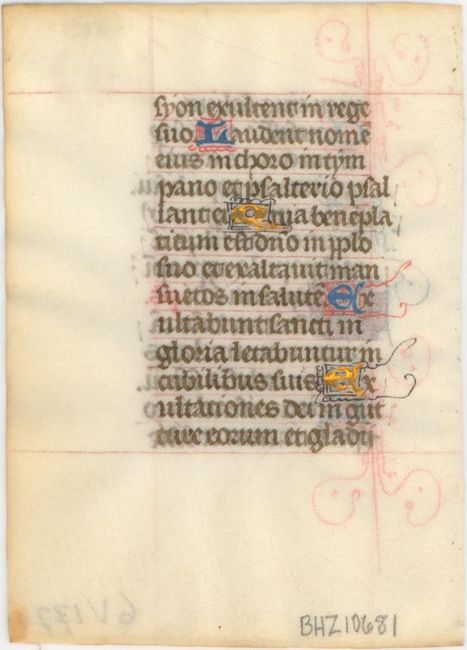 syon exultent in rege
suo Laudent nomē
eius in choro in tym
pano et psalterio psal
lant ei Quia benepla
citum est dn̄o in pplo
suo et exaltauit man
suetos in salutē Ex
ultabunt sancti in
gloria letabuntur in
cubilibus suis Ex
ultaciones dei in gut
ture eorum et gladij
BHZ10681